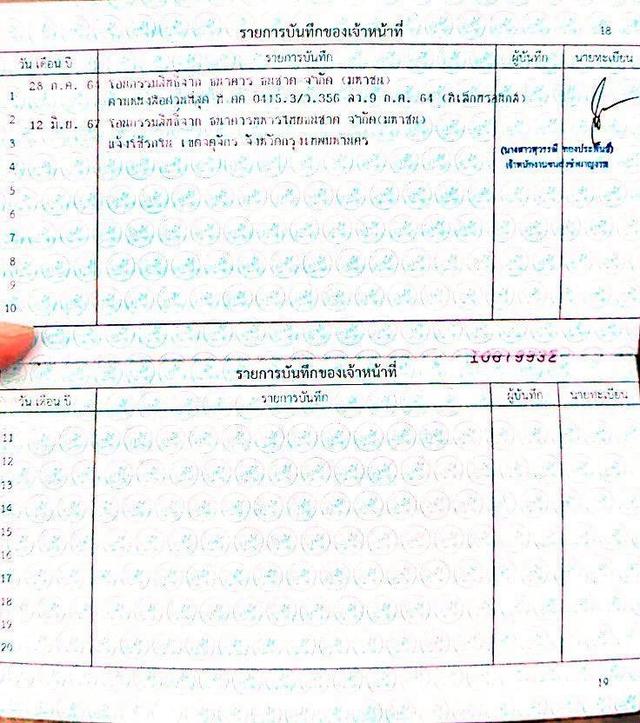 รายการบันทึกของเจ้าหน้าที่
18
วัน เดือน ปี รายการบันทึก ผู้บันทึก นายทะเบียน
1 28 ก.ค. 64 โอนกรรมสิทธิ์จาก ธนาคาร ธนชาต จำกัด (มหาชน)
ตามหนังสือด่วนที่สุด ที่ คค 0415.3/ว.356 ลว.9 ก.ค. 64 (อิเล็กทรอนิกส์)
2 12 มิ.ย. 67 โอนกรรมสิทธิ์จาก ธนาคารทหารไทยธนชาต จำกัด(มหาชน)
3 แจ้งใช้รถใน เขตจตุจักร จังหวัดกรุงเทพมหานคร
เจ้าพนักงานขนส่งชำนาญงาน
4
5
6
7
8
9
10
10619932
รายการบันทึกของเจ้าหน้าที่
วัน เดือน ปี รายการบันทึก ผู้บันทึก นายทะเบียน
11
12
13
14
15
16
17
18
19
20
19